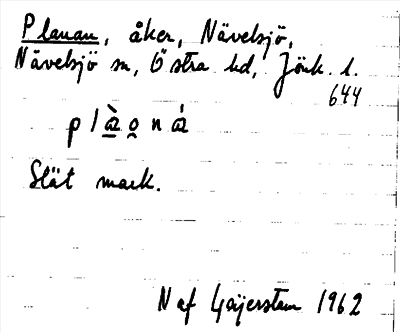 Planan, åker, Nävelsjö,
Nävelsjö sn, Östra hd, Jönk. l.
644
Slät mark.
N af Geijerstam 1962